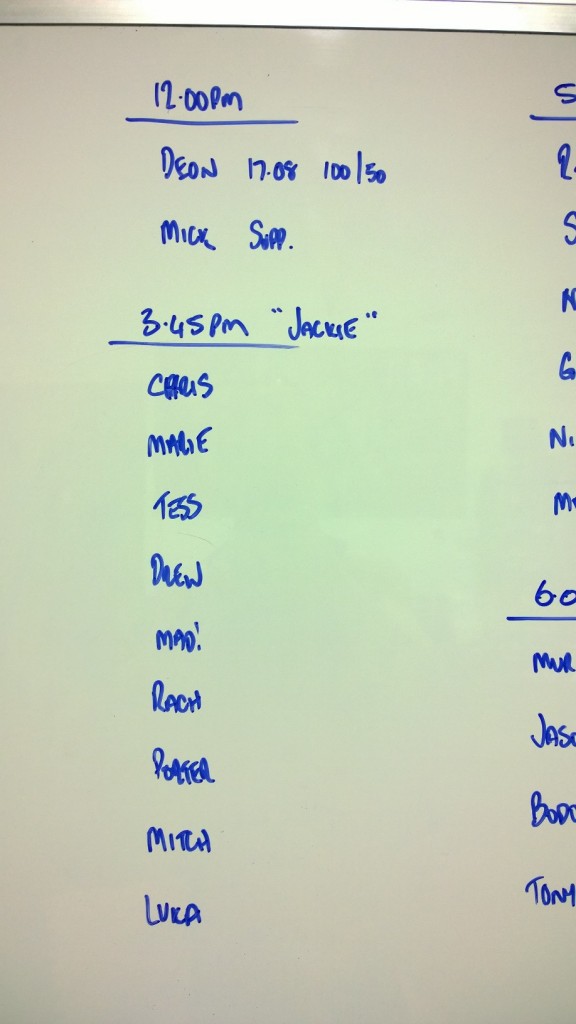 12.00PM
DEON 17.08 100/50
MICK SUPP.
3.45PM "JACKIE"
CHRIS
MARIE
TESS
DREW
MADI
RACH
PORTER
MITCH
LUKA
S
R
S
N
G
NI
M
6.0
MUR
JASO
BODD
TONY